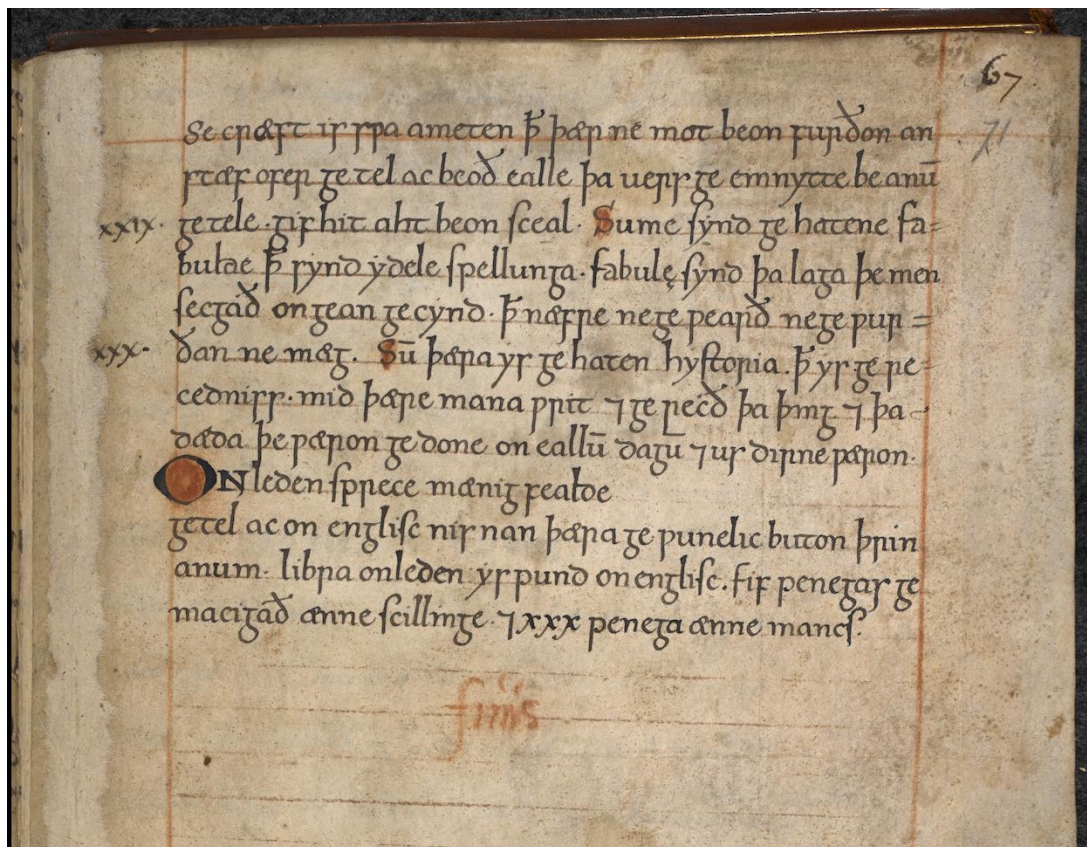 67
71
Se cræft is sƿa ameten ꝥ þær ne mot beon furðon an
stæf ofer getel ac beoð ealle þa uerss ge emnytte be anū
xxix· getele · gif hit aht beon sceal · Sume sẏnd ge hatene fa=
bulae ꝥ sẏnd ẏdele spellunga · fabulę sẏnd þa laga þe men
secgað ongean gecẏnd · ꝥ næfre ne ge ƿearð ne ge ƿur=
xxx· ðan ne mæg. Sū þæra ys ge haten hystoria. ꝥ ys ge re=
cedniss · mid þære mana ƿrit ⁊ ge recð þa þing ⁊ þa-
dæda þe ƿæron ge done on eallū dagū ⁊ us dirne ƿæron·
ON leden sprece mænig fealde
getel ac on englisc nis nan þæra ge ƿunelic buton þrin
anum· libra onleden ẏs pund on englisc. fif penegas ge
macigað ænne scillinge · ⁊ xxx penega ænne mancs.
finis